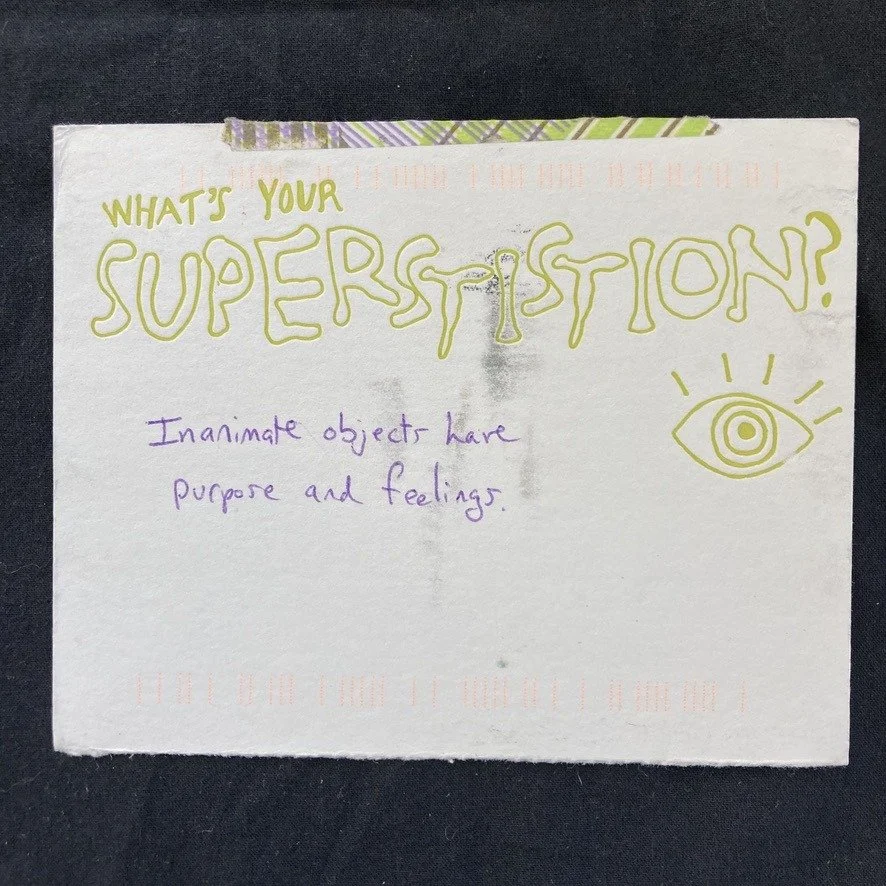 WHAT'S YOUR
SUPERSTISTION?
Inanimate objects have
purpose and feelings.